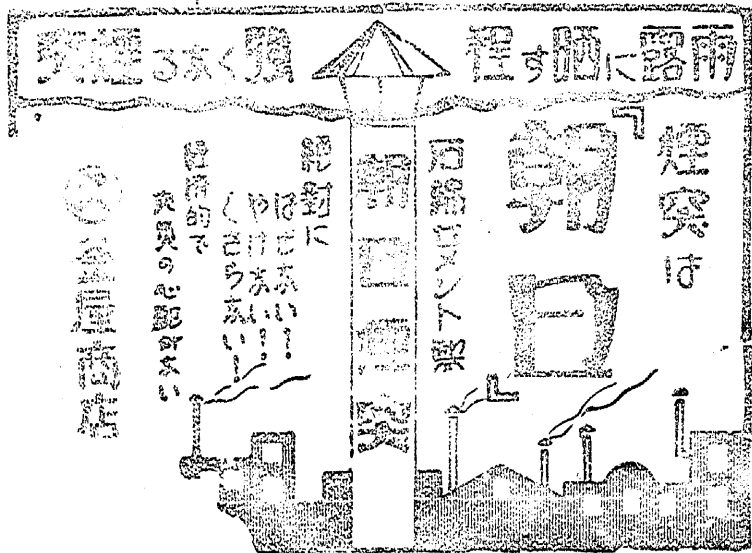 雨露に晒す程
強くなる煙突
煙突は
「朝日」
石綿セメント製
朝日煙突
絶対に
はぜない!
やけない!
くさらない!
経済的で
火災の心配がない